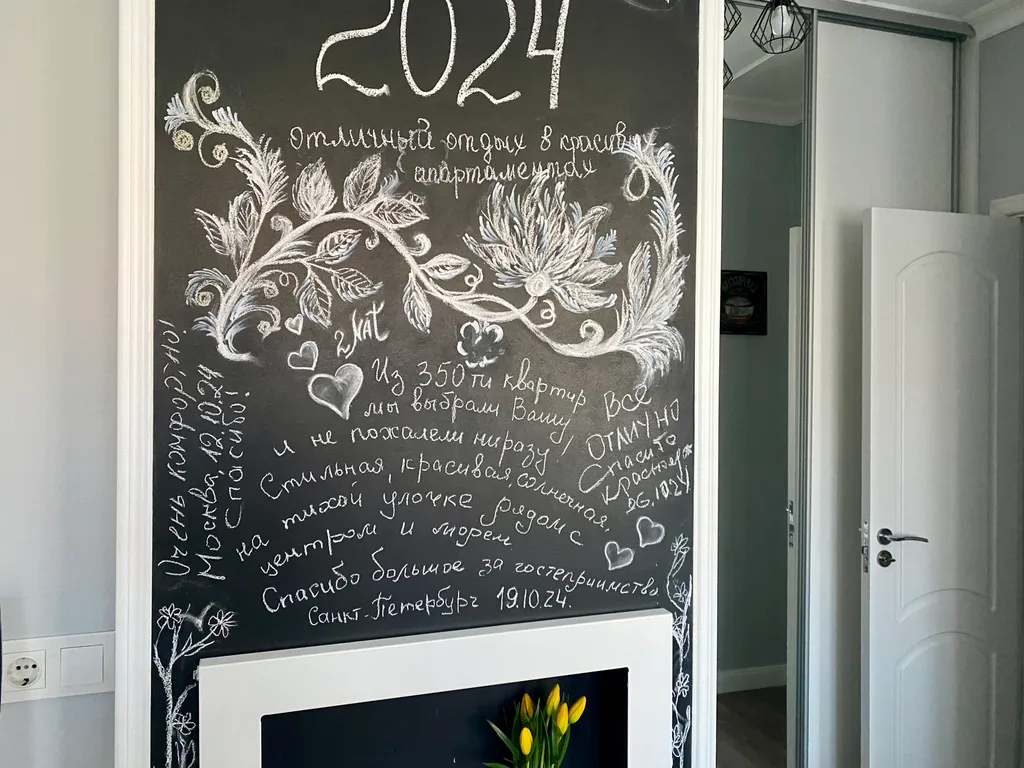 2024
отличный отдых в красивых
апартаментах
Из 350ти квартир
мы выбрали Вашу
и не пожалели ни разу!
Стильная, красивая, солнечная,
на тихой улочке рядом с
центром и морем.
Спасибо большое за гостеприимство
Санкт-Петербург 19.10.24.
Очень комфортно!
Москва, 12.10.24
Спасибо!
Всё
ОТЛИЧНО
Спасибо
26.10.24